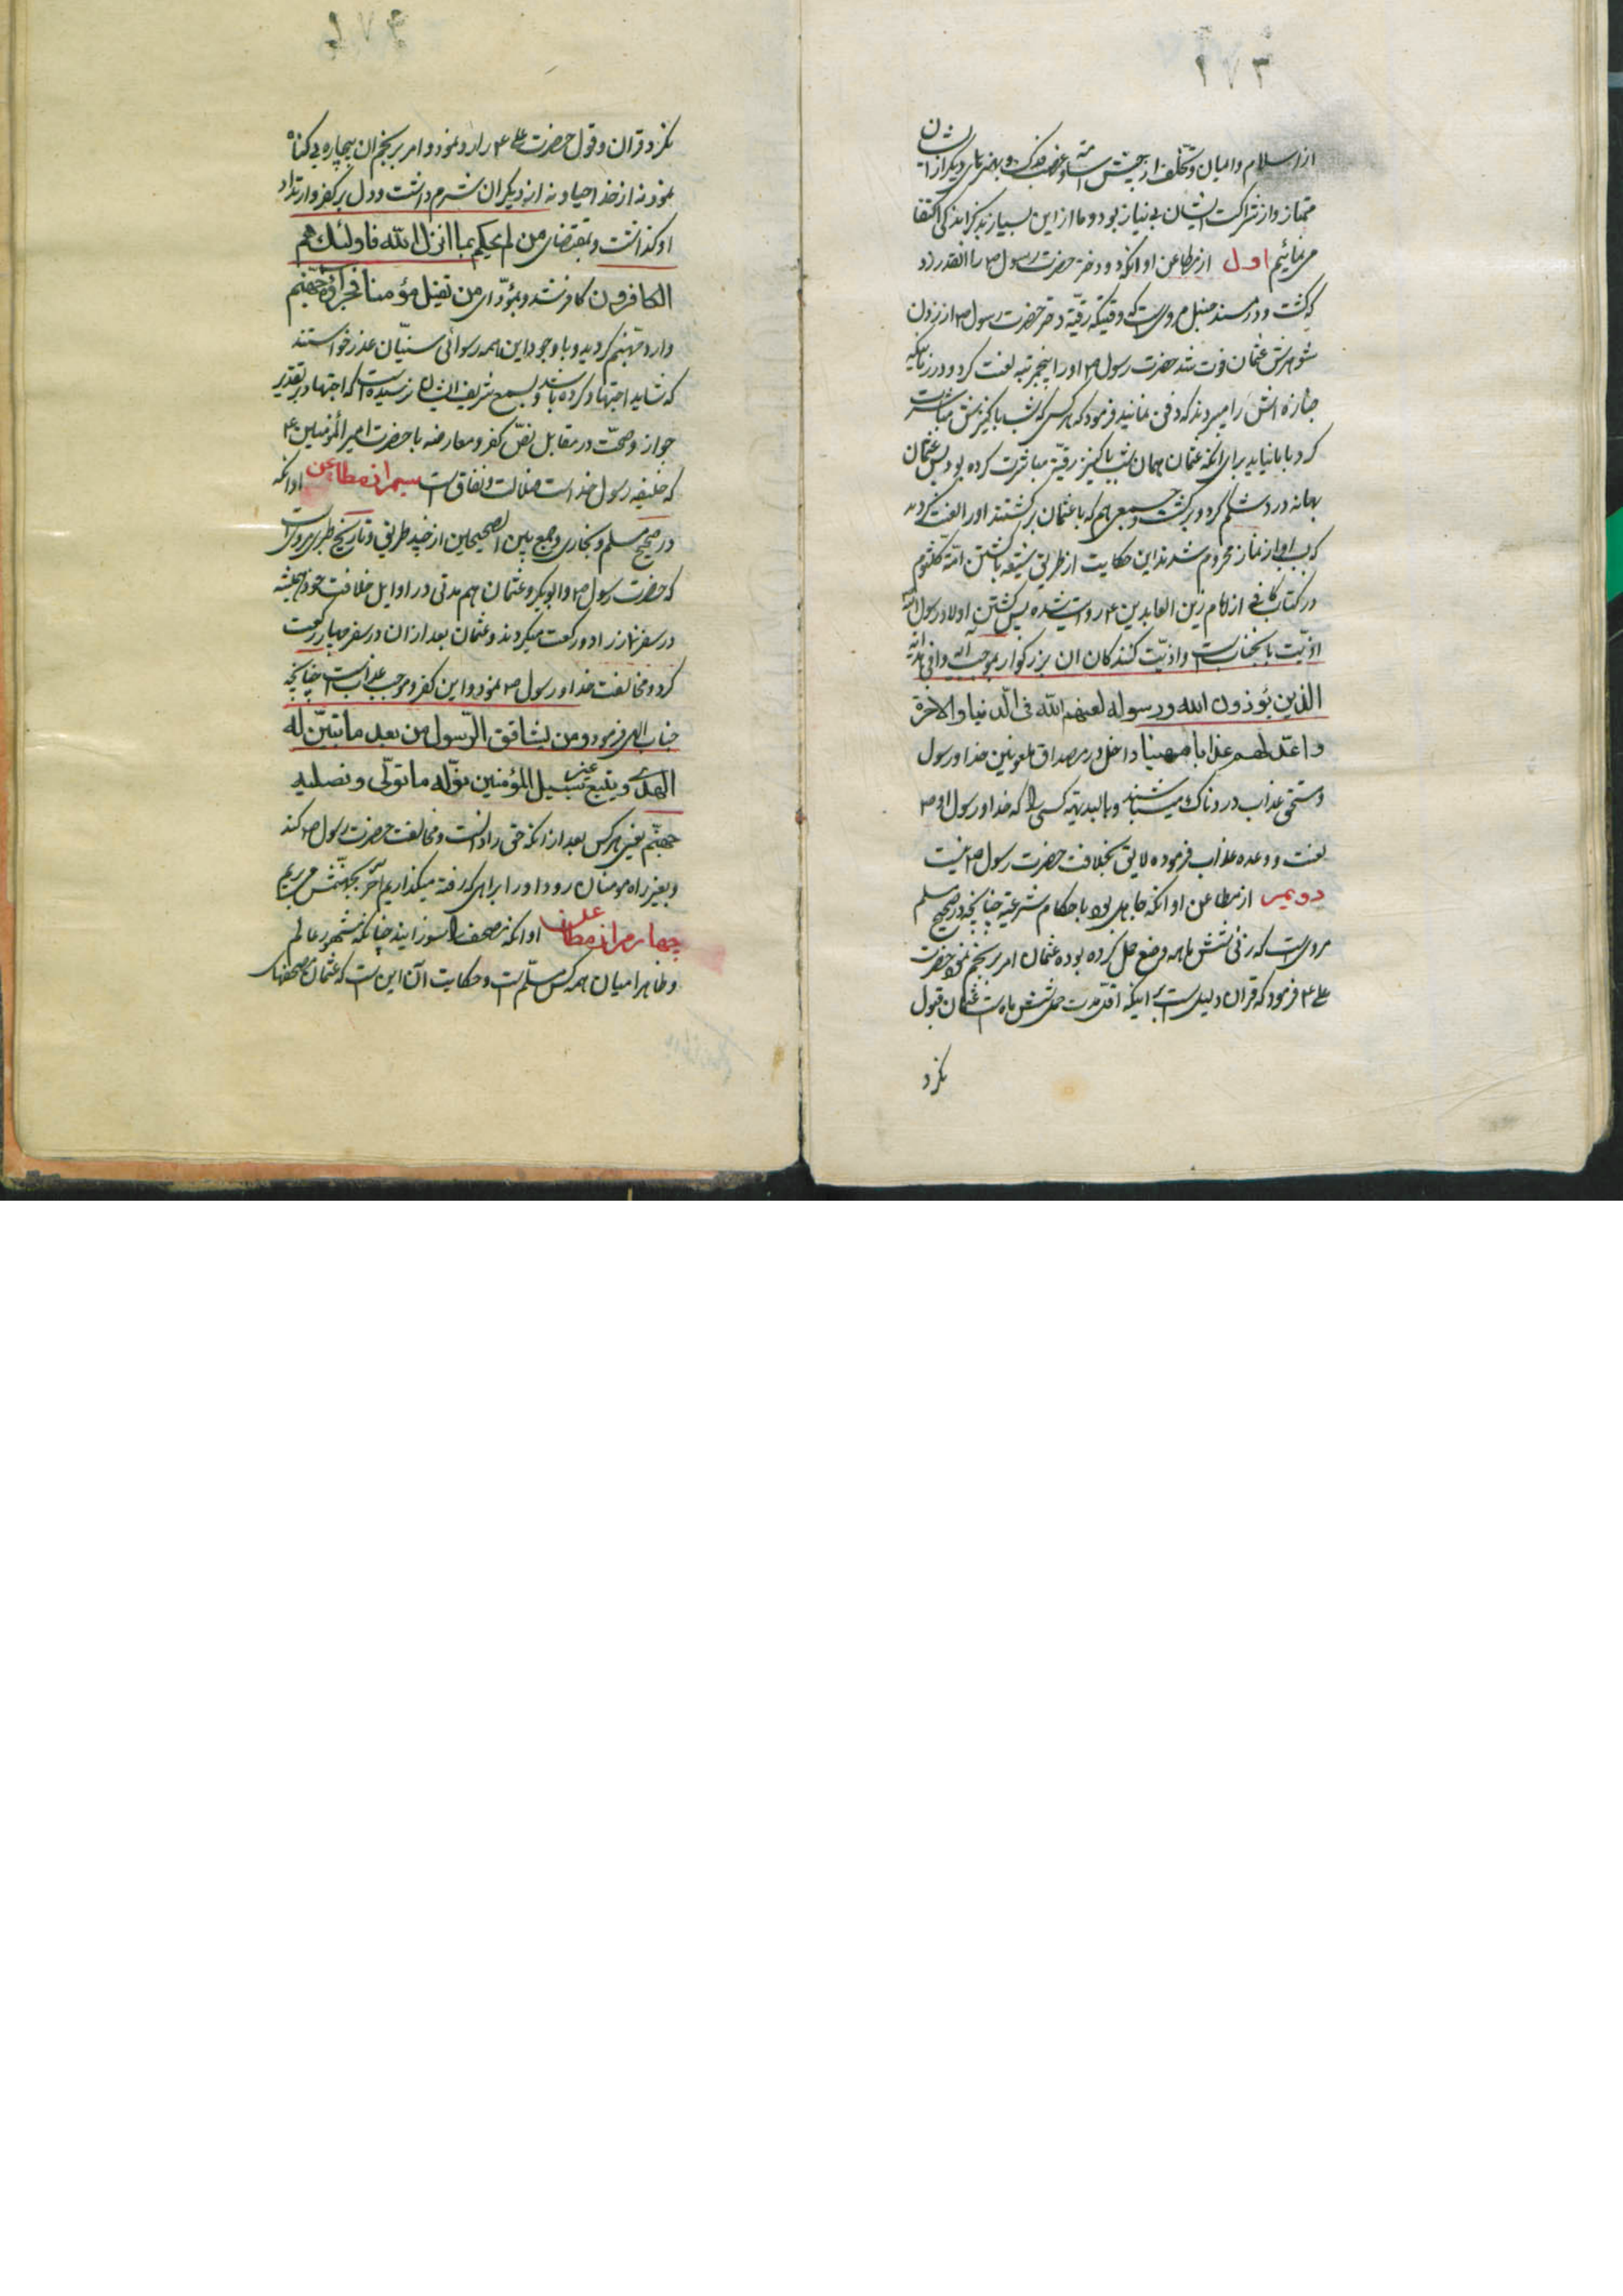 ۱۷۳
از اسلام و ایمان و تخلف از جیش اسامه و غصب فدک و بهنرهای دیگر از ایشان
ممتاز و از شراکت ایشان بی نیاز بود و ما از این بسیار بذکر اندکی اکتفا
می نمائیم اول از مطاعن او انکه دو دختر حضرت رسول ص را انقدر زد
که کشت و در مسند حنبل مرویست که وقتیکه رقیّه دختر حضرت رسول ص از زدن
شوهرش عثمان فوت شد حضرت رسول ص او را پنجمرتبه لعنت کرد و در زمانیکه
جنازه اش را میبردند که دفن نمایند فرمود که هر کس که شب با کنیزش مباشرت
کرد با ما نیاید برای انکه عثمان همان شب با کنیز رقیّه مباشرت کرده بود پس عثمان
بهانه درد شکم کرد و برگشت و جمعی هم که با عثمان برگشتند او را لعنت کردند
که بسبب او از نماز محروم شدند این حکایت از طریق شیعه با کشتن امّ کلثوم
در کتاب کافی از امام زین العابدین ع روایت شده پس کشتن اولاد رسول
اذیّت بانجنابست و اذیّت کنندکان ان بزرکوار بموجب ایه وافی هدایه
الذین یؤذون الله ورسوله لعنهم الله فی الدنیا والاخرة
و اعدّ لهم عذابا مهینا داخل در مصداق ملعونین خدا و رسول
و مستحق عذاب دردناک میباشند و بالبدیهه کسی را که خدا و رسول او ص
لعنت و وعده عذاب فرموده لایق بخلافت حضرت رسول ص نیست
دویمر از مطاعن او انکه جاهل بود باحکام شرعیّه چنانچه در صحیح مسلم
مرویست که زنی شش ماهه وضع حمل کرده بوده عثمان امر برجم نمود حضرت
علی ع فرمود که قران دلیلست بر اینکه اقل مدت حمل شش ماه است عثمان قبول
نکرد
۱۷۴
نکرد قران و قول حضرت علی ع را رد نمود و امر برجم ان بیچاره بی کناه
نمود نه از خدا حیا و نه از دیکران شرم داشت و دل بر کفر و ارتداد
او کذاشت و بمقتضای من لم یحکم بما انزل الله فاولئک هم
الکافرون کافر شد و بمؤدّای من یقتل مؤمنا فجزاؤه جهنم
وارد جهنم کردید و با وجود این همه رسوائی سنیّان عذر خواستند
که شاید اجتهاد کرده باشد و بسمع شریف ایشان نرسیده است که اجتهاد بر تقدیر
جواز و صحّت در مقابل نصّ کفر و معارضه با حضرت امیر المؤمنین ع
که خلیفه رسول خداست ضلالت و نفاق است سیمر از مطاعن او انکه
در صحیح مسلم و بخاری و جمع بین الصحیحین از چند طریق و تاریخ طبری مرویست
که حضرت رسول ص و ابوبکر و عثمان هم مدتی در اوایل خلافت خود همیشه
در سفر نماز را دو رکعت میکردند و عثمان بعد از ان در سفر چهار رکعت
کرد و مخالفت خدا و رسول ص نمود و این کفر و موجب عذابست چنانچه
جناب الهی فرمود و من یشاقق الرّسول من بعد ما تبیّن له
الهدی و یتبع غیر سبیل المؤمنین نولّه ما تولّی و نصلیه
جهنّم یعنی هر کس بعد از انکه حق را دانست و مخالفت حضرت رسول ص کند
و بغیر راه مومنان رود او را براهی که رفته میکذاریم آخر بجهنمش می بریم
چهارمر از مطاعن او انکه مصحف را سوزانید چنانکه مشهور عالم
و ظاهرا میان همه کس مسلّم است و حکایت آن این است که عثمان مصحفهای